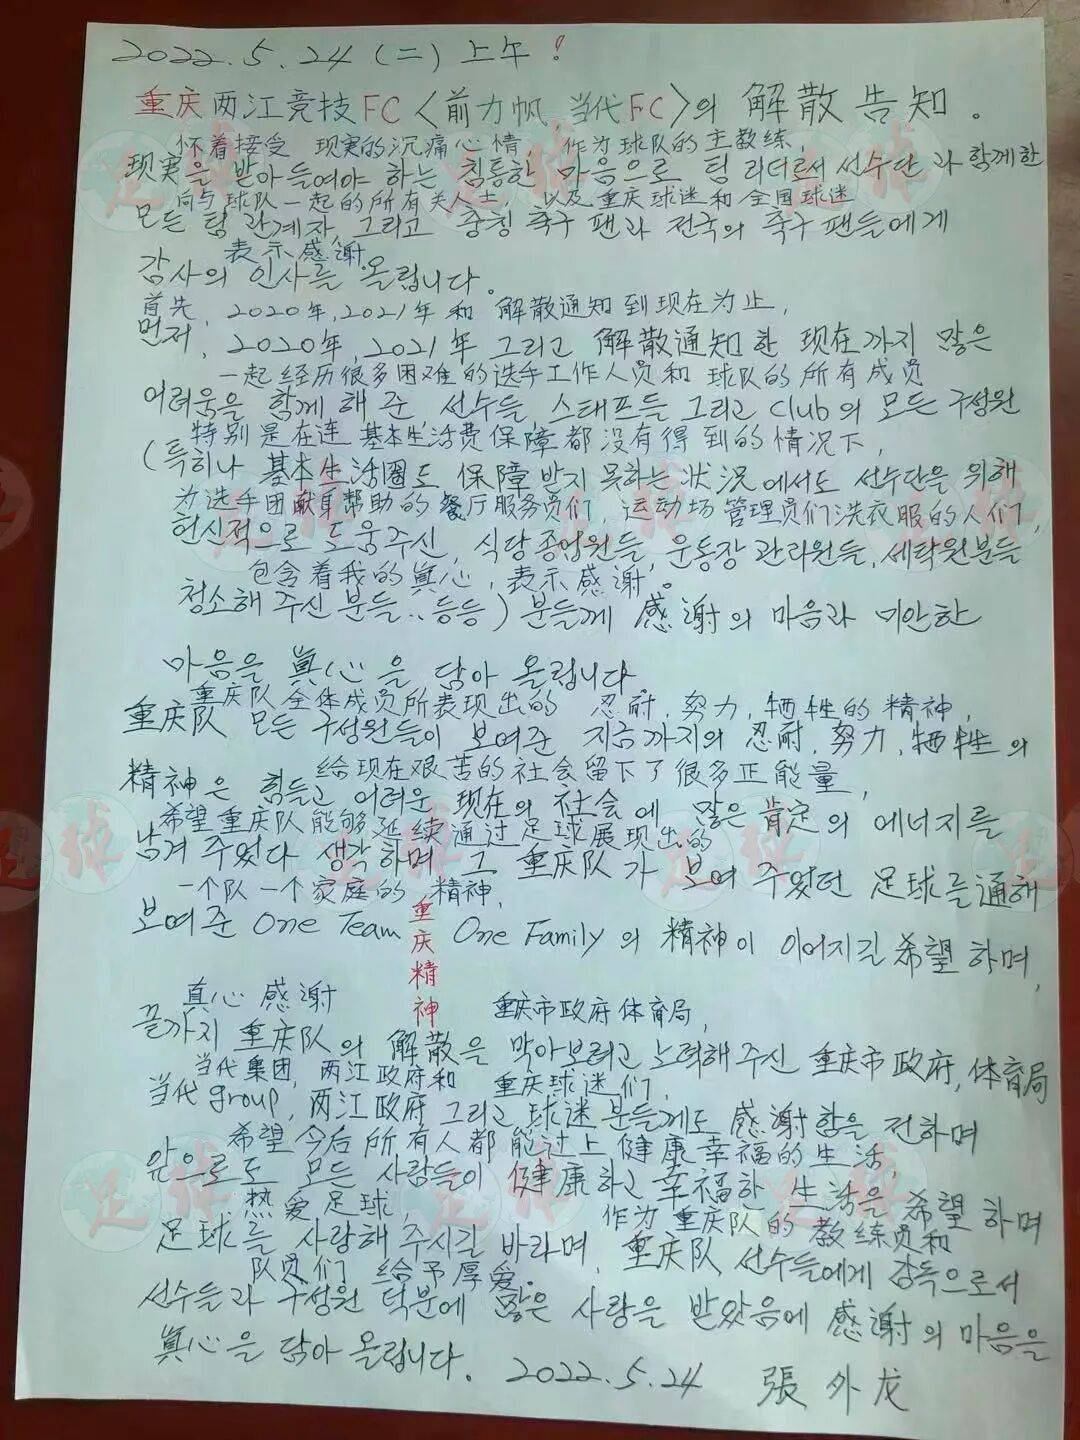 2022.5.24(二)上午!
重庆两江竞技FC〈前力帆 当代FC〉의 解散告知。
怀着接受 现实的沉痛心情, 作为球队的主教练,
现实을 받아들여야 하는 침통한 마음으로 팀 리더로서 선수단과 함께한
向与球队一起的所有关人士, 以及重庆球迷和全国球迷
모든 팀 관계자, 그리고 중칭 축구 팬과 전국의 축구 팬들에게
表示感谢
감사의 인사를 올립니다。
首先, 2020年,2021年 和 解散通知到现在为止,
먼저, 2020年,2021年 그리고 解散通知한 现在까지 많은
一起经历很多困难的选手工作人员和球队的所有成员
어려움을 함께 해 준 선수들 스태프들 그리고 Club의 모든 구성원
特别是在连基本生活费保障都没有得到的情况下,
(특히나 基本生活圈도 保障받지 못하는 状况에서도 선수단을 위해
为选手团献身帮助的餐厅服务员们, 运动场管理员们洗衣服的人们,
헌신적으로 도움주신, 식당종업원들, 운동장관리원들, 세탁원분들
包含着我的真心, 表示感谢。
청소해 주신 분들..등등) 분들께 感谢의 마음과 미안한
마음을 眞心을 담아 올립니다
重庆队全体成员所表现出的 忍耐,努力,牺牲的精神,
重庆队 모든 구성원들이 보여준 지금까지의 忍耐,努力,牺牲의
给现在艰苦的社会留下了很多正能量,
精神은 힘들고 어려운 现在의 社会에 많은 肯定의 에너지를
希望重庆队能够延续通过足球展现出的
남겨 주었다 생각하며 그 重庆队가 보여 주었던 足球를 通해
一个队一个家庭的 精神,
보여준 One Team One Family의 精神이 이어지길 希望하며,
重庆精神
真心感谢 重庆市政府体育局,
끝까지 重庆队의 解散을 막아보려고 노력해주신 重庆市政府,体育局
当代集团, 两江政府和 重庆球迷们,
当代group, 两江政府 그리고 球迷 분들께도 感谢함을 전하며
希望今后所有人都能过上健康幸福的生活,
앞으로도 모든 사람들이 健康하고 幸福한 生活을 希望하며
热爱足球, 作为重庆队的教练员和
足球를 사랑해 주시길 바라며, 重庆队 선수들에게 감독으로서
队员们 给予厚爱。
선수들과 구성원 덕분에 많은 사랑을 받았음에 感谢의 마음을
眞心을 담아 올립니다. 2022.5.24 張外龙